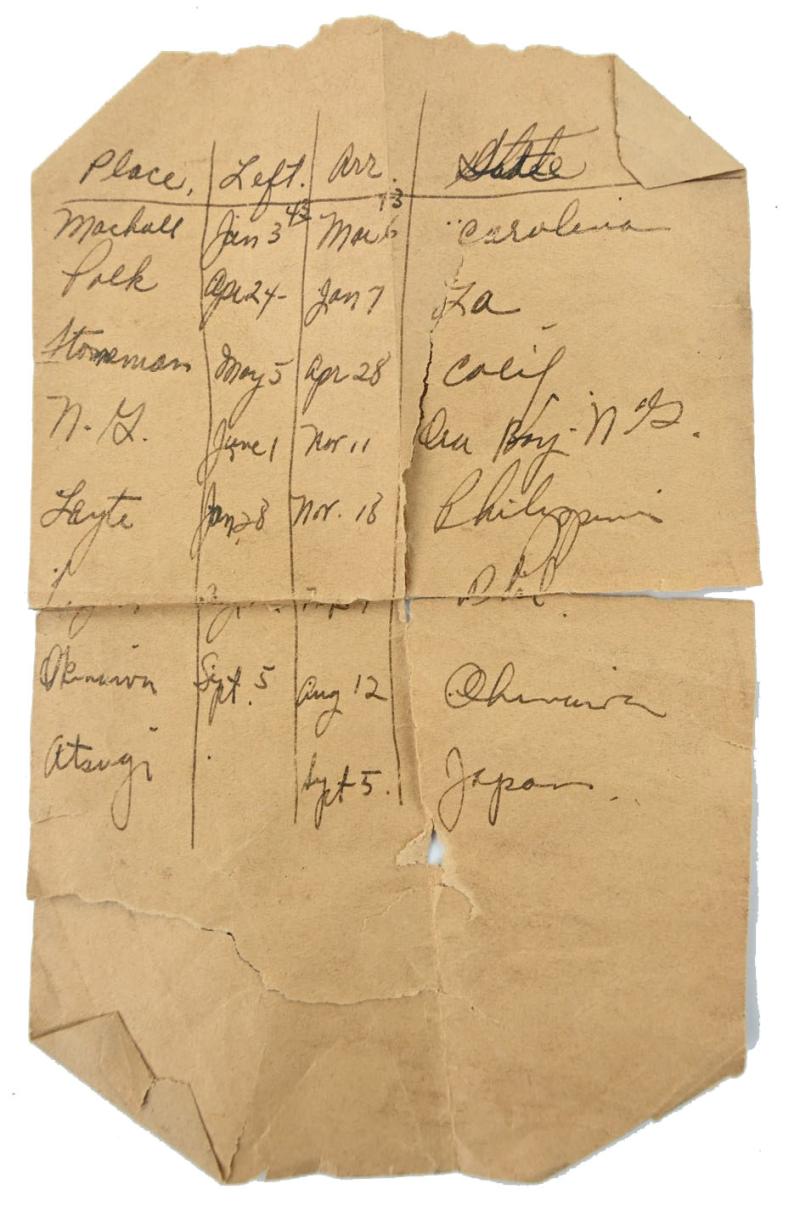 Place, Left. Arr. State
Mackall Jan 3 43 Mar 6 43 Carolina
Polk Apr 24 Jan 7 La
Stoneman May 5 Apr 28 Calif
N. G. June 1 Nov 11 Oro Bay N G.
Layte Jan 28 Nov. 18 Philippines
Okinawa Sept. 5 Aug 12 Okinawa
Atsugi Sept 5. Japan.